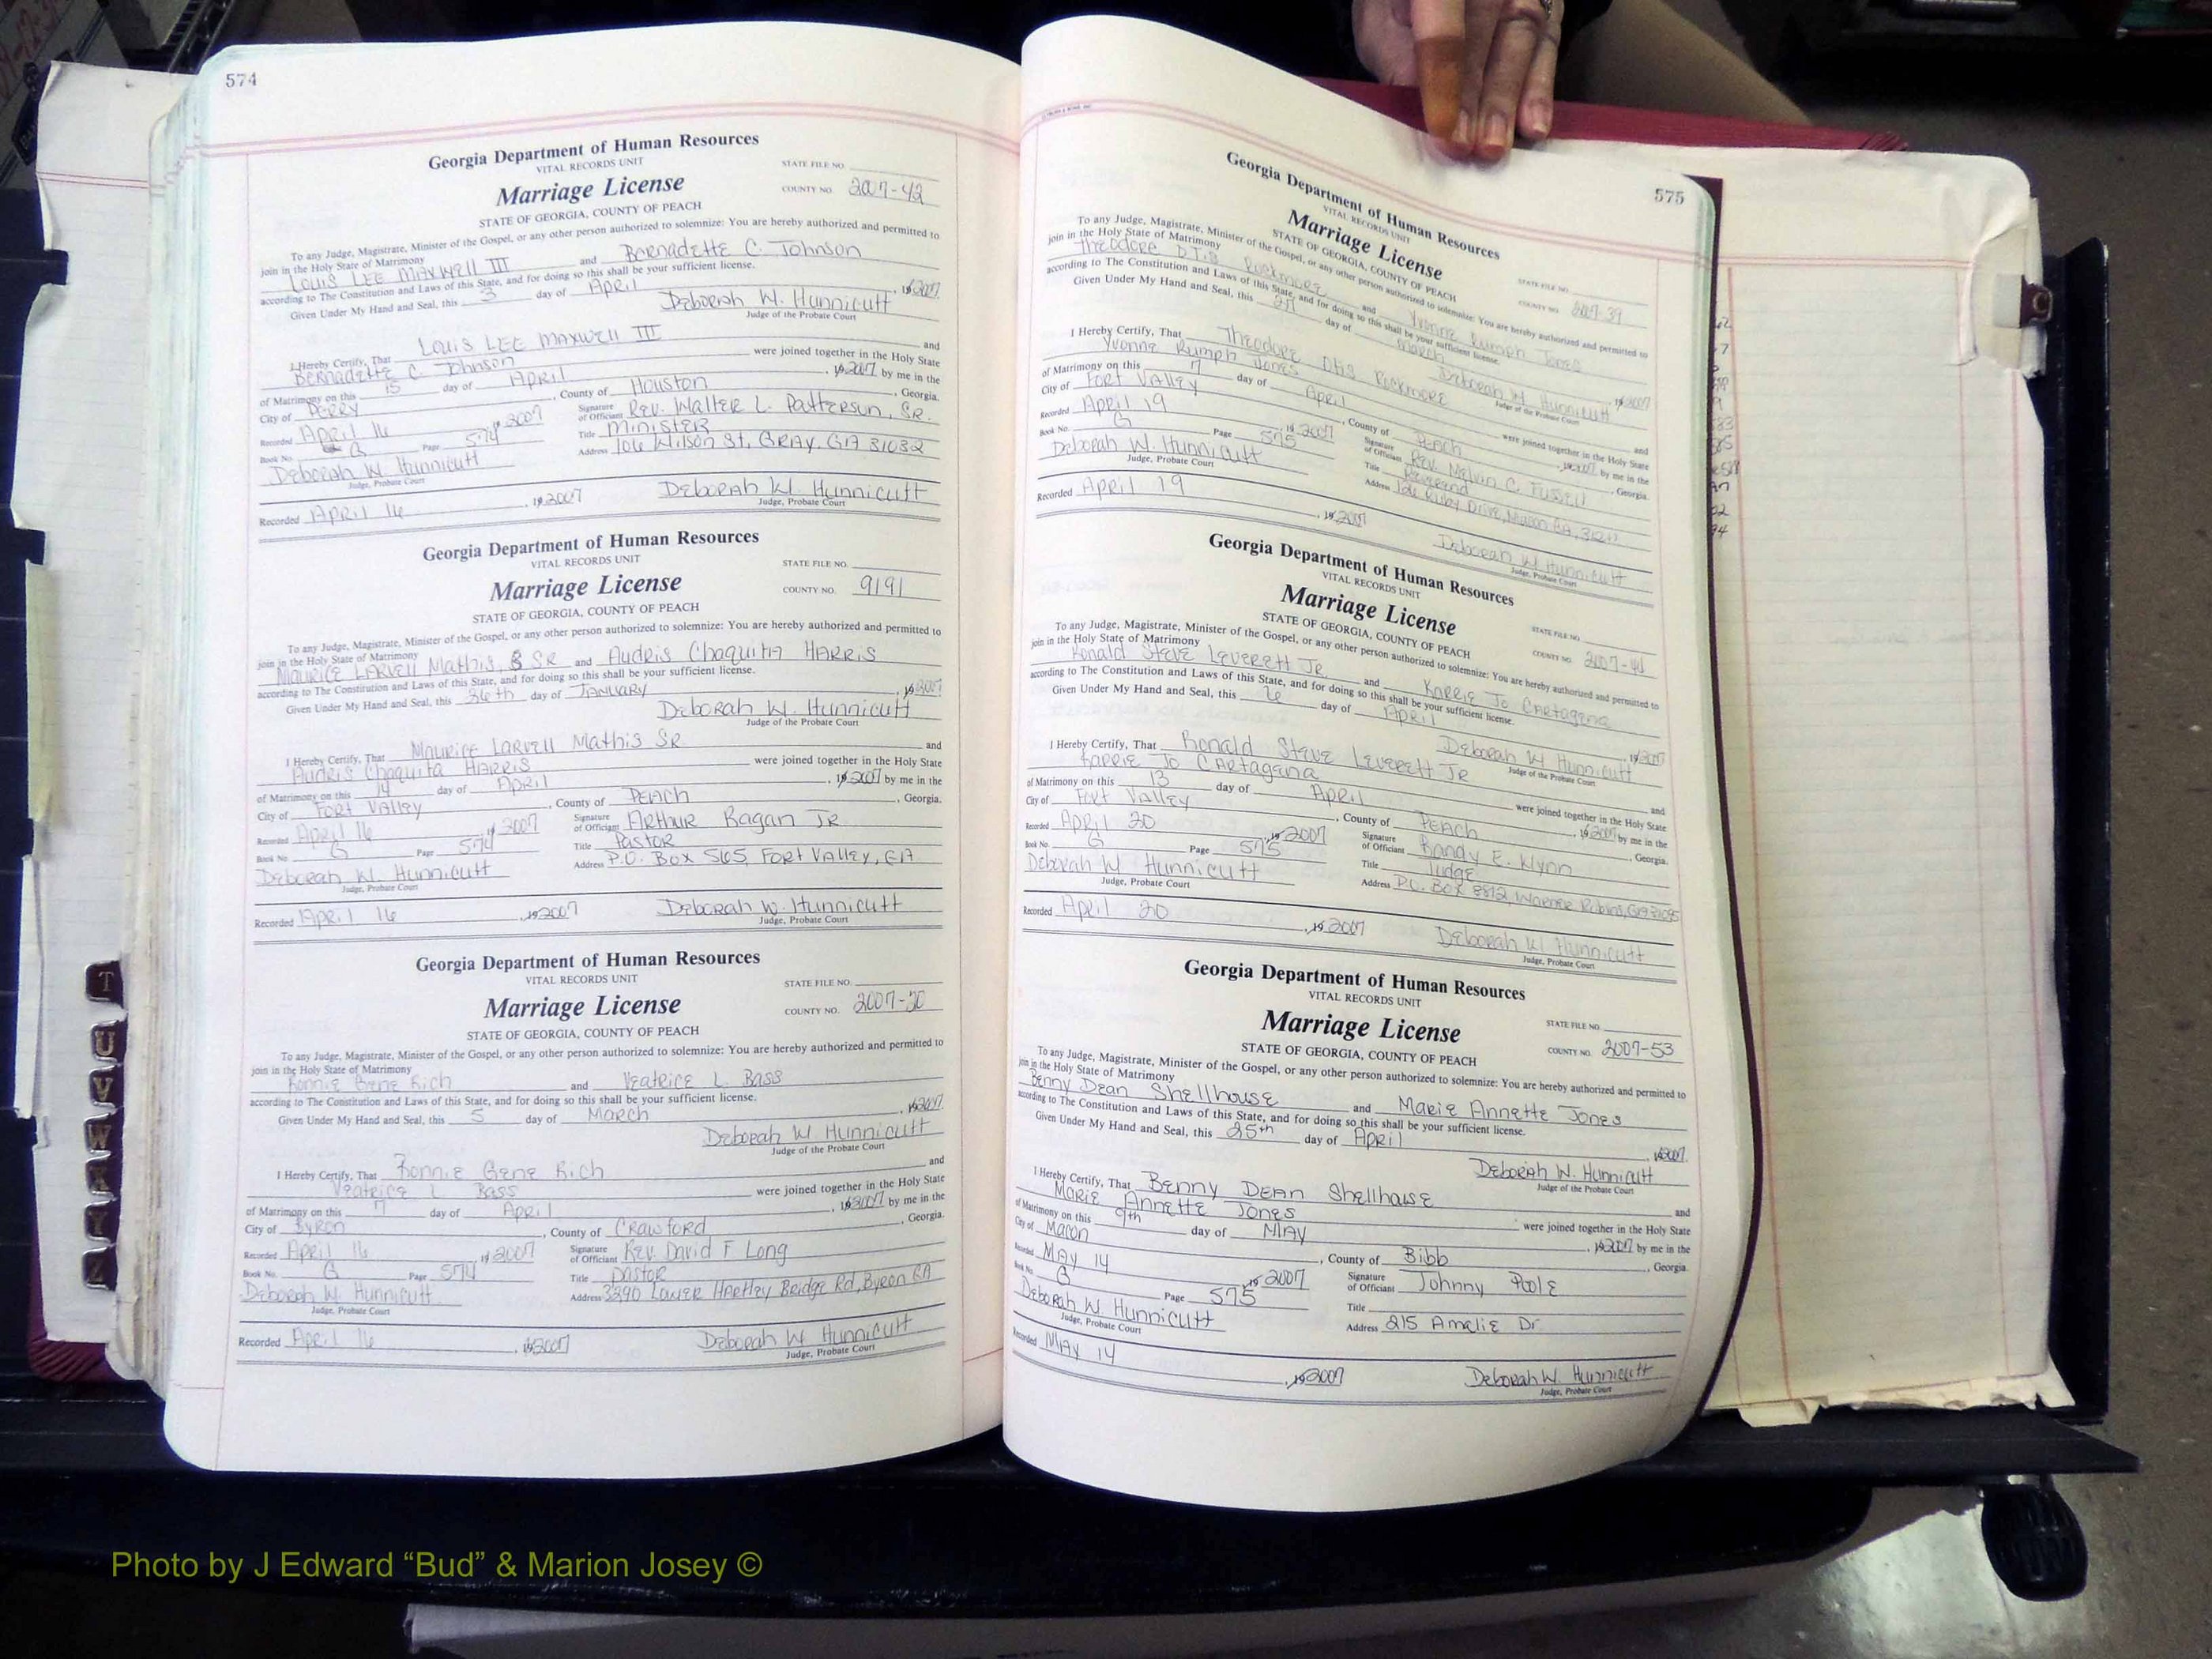 574
Georgia Department of Human Resources
VITAL RECORDS UNIT
STATE FILE NO.
Marriage License
COUNTY NO. 2007-42
STATE OF GEORGIA, COUNTY OF PEACH
To any Judge, Magistrate, Minister of the Gospel, or any other person authorized to solemnize: You are hereby authorized and permitted to
join in the Holy State of Matrimony
Louis LEE MAXWEll III and Bernadette C. Johnson
according to The Constitution and Laws of this State, and for doing so this shall be your sufficient license.
Given Under My Hand and Seal, this 3 day of April, 2007
Deborah W. Hunnicutt
Judge of the Probate Court
I Hereby Certify, That Louis LEE MAXWEll III and
Bernadette C. Johnson were joined together in the Holy State
of Matrimony on this 15 day of April, 2007 by me in the
City of Perry, County of Houston, Georgia.
Recorded April 16, 2007 Signature of Officiant Rev. Walter L. Patterson, Sr.
Book No. G Page 574 Title Minister
Deborah W. Hunnicutt Address 106 Wilson St, GRAY, GA 31032
Judge, Probate Court
Recorded April 16, 2007 Deborah W. Hunnicutt
Judge, Probate Court
Georgia Department of Human Resources
VITAL RECORDS UNIT
STATE FILE NO.
Marriage License
COUNTY NO. 9191
STATE OF GEORGIA, COUNTY OF PEACH
To any Judge, Magistrate, Minister of the Gospel, or any other person authorized to solemnize: You are hereby authorized and permitted to
join in the Holy State of Matrimony
Maurice Larvell Mathis, SR and Audris Chaquita HARRIS
according to The Constitution and Laws of this State, and for doing so this shall be your sufficient license.
Given Under My Hand and Seal, this 26th day of January, 2007
Deborah W. Hunnicutt
Judge of the Probate Court
I Hereby Certify, That Maurice Larvell Mathis SR and
Audris Chaquita HARRIS were joined together in the Holy State
of Matrimony on this 14 day of April, 2007 by me in the
City of Fort Valley, County of Peach, Georgia.
Recorded April 16, 2007 Signature of Officiant Arthur Ragan Jr
Book No. G Page 574 Title Pastor
Deborah W. Hunnicutt Address P.O. Box 565, Fort Valley, GA
Judge, Probate Court
Recorded April 16, 2007 Deborah W. Hunnicutt
Judge, Probate Court
Georgia Department of Human Resources
VITAL RECORDS UNIT
STATE FILE NO.
Marriage License
COUNTY NO. 2007-30
STATE OF GEORGIA, COUNTY OF PEACH
To any Judge, Magistrate, Minister of the Gospel, or any other person authorized to solemnize: You are hereby authorized and permitted to
join in the Holy State of Matrimony
Ronnie Gene Rich and Veatrice L. Bass
according to The Constitution and Laws of this State, and for doing so this shall be your sufficient license.
Given Under My Hand and Seal, this 5 day of March, 2007
Deborah W Hunnicutt
Judge of the Probate Court
I Hereby Certify, That Ronnie Gene Rich and
Veatrice L Bass were joined together in the Holy State
of Matrimony on this 7 day of April, 2007 by me in the
City of Byron, County of Crawford, Georgia.
Recorded April 16, 2007 Signature of Officiant Rev. David F Long
Book No. G Page 574 Title Pastor
Deborah W Hunnicutt Address 3290 Lower Hartley Bridge Rd, Byron GA
Judge, Probate Court
Recorded April 16, 2007 Deborah W Hunnicutt
Judge, Probate Court
575
Georgia Department of Human Resources
VITAL RECORDS UNIT
STATE FILE NO.
Marriage License
COUNTY NO. 2007-39
STATE OF GEORGIA, COUNTY OF PEACH
To any Judge, Magistrate, Minister of the Gospel, or any other person authorized to solemnize: You are hereby authorized and permitted to
join in the Holy State of Matrimony
Theodore Otis Rockmore and Yvonne Rumph Jones
according to The Constitution and Laws of this State, and for doing so this shall be your sufficient license.
Given Under My Hand and Seal, this day of March, 2007
Deborah W Hunnicutt
Judge of the Probate Court
I Hereby Certify, That Theodore Otis Rockmore and
Yvonne Rumph Jones were joined together in the Holy State
of Matrimony on this 7 day of April, 2007 by me in the
City of Fort Valley, County of Peach, Georgia.
Recorded April 19, 2007 Signature of Officiant Rev. Melvin C. Fussell
Book No. G Page 575 Title Reverend
Deborah W. Hunnicutt Address Drive, Macon GA,
Judge, Probate Court
Recorded April 19, 2007 Deborah W Hunnicutt
Judge, Probate Court
Georgia Department of Human Resources
VITAL RECORDS UNIT
STATE FILE NO.
Marriage License
COUNTY NO.
STATE OF GEORGIA, COUNTY OF PEACH
To any Judge, Magistrate, Minister of the Gospel, or any other person authorized to solemnize: You are hereby authorized and permitted to
join in the Holy State of Matrimony
Ronald Steve Leverett Jr and Karrie Jo Cartagena
according to The Constitution and Laws of this State, and for doing so this shall be your sufficient license.
Given Under My Hand and Seal, this 6 day of April, 2007
Deborah W Hunnicutt
Judge of the Probate Court
I Hereby Certify, That Ronald Steve Leverett Jr and
Karrie Jo Cartagena were joined together in the Holy State
of Matrimony on this 13 day of April, 2007 by me in the
City of Fort Valley, County of Peach, Georgia.
Recorded April 20, 2007 Signature of Officiant Randy E. Wynn
Book No. G Page 575 Title Judge
Deborah W Hunnicutt Address P.O. Box 8812, Warner Robins, GA 31095
Judge, Probate Court
Recorded April 20, 2007 Deborah W Hunnicutt
Judge, Probate Court
Georgia Department of Human Resources
VITAL RECORDS UNIT
STATE FILE NO.
Marriage License
COUNTY NO. 2007-53
STATE OF GEORGIA, COUNTY OF PEACH
To any Judge, Magistrate, Minister of the Gospel, or any other person authorized to solemnize: You are hereby authorized and permitted to
join in the Holy State of Matrimony
Benny Dean Shellhouse and Marie Annette Jones
according to The Constitution and Laws of this State, and for doing so this shall be your sufficient license.
Given Under My Hand and Seal, this 25th day of April, 2007
Deborah W. Hunnicutt
Judge of the Probate Court
I Hereby Certify, That Benny Dean Shellhouse and
Marie Annette Jones were joined together in the Holy State
of Matrimony on this 9th day of May, 2007 by me in the
City of Macon, County of Bibb, Georgia
Recorded May 14, 2007 Signature of Officiant Johnny Poole
Book No. G Page 575 Title
Deborah W. Hunnicutt Address 215 Amelie Dr.
Judge, Probate Court
Recorded May 14, 2007 Deborah W. Hunnicutt
Judge, Probate Court
T
U
V
W
X
Y
Z
Photo by J Edward “Bud” & Marion Josey ©